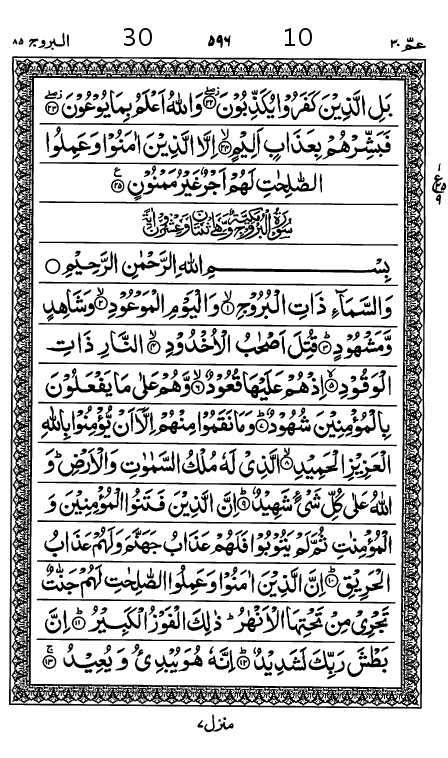 البروج ٨٥ 30 ٥٩٦ 10 عمّ ٣٠
بَلِ الَّذِيْنَ كَفَرُوْا يُكَذِّبُوْنَ ۝٢٢ وَاللّٰهُ اَعْلَمُ بِمَا يُوْعُوْنَ ۝٢٣
فَبَشِّرْهُمْ بِعَذَابٍ اَلِيْمٍ ۝٢٤ اِلَّا الَّذِيْنَ اٰمَنُوْا وَعَمِلُوا
الصّٰلِحٰتِ لَهُمْ اَجْرٌ غَيْرُ مَمْنُوْنٍ ۝٢٥
سُوْرَةُ الْبُرُوْجِ مَكِّيَّةٌ وَّهِيَ اثْنَتَانِ وَعِشْرُوْنَ اٰيَةً
بِسْمِ اللّٰهِ الرَّحْمٰنِ الرَّحِيْمِ ۝
وَالسَّمَآءِ ذَاتِ الْبُرُوْجِ ۝١ وَالْيَوْمِ الْمَوْعُوْدِ ۝٢ وَشَاهِدٍ
وَّمَشْهُوْدٍ ۝٣ قُتِلَ اَصْحٰبُ الْاُخْدُوْدِ ۝٤ النَّارِ ذَاتِ
الْوَقُوْدِ ۝٥ اِذْ هُمْ عَلَيْهَا قُعُوْدٌ ۝٦ وَّهُمْ عَلٰى مَا يَفْعَلُوْنَ
بِالْمُؤْمِنِيْنَ شُهُوْدٌ ۝٧ وَمَا نَقَمُوْا مِنْهُمْ اِلَّا اَنْ يُّؤْمِنُوْا بِاللّٰهِ
الْعَزِيْزِ الْحَمِيْدِ ۝٨ الَّذِيْ لَهٗ مُلْكُ السَّمٰوٰتِ وَالْاَرْضِ ؕ وَ
اللّٰهُ عَلٰى كُلِّ شَيْءٍ شَهِيْدٌ ۝٩ اِنَّ الَّذِيْنَ فَتَنُوا الْمُؤْمِنِيْنَ وَ
الْمُؤْمِنٰتِ ثُمَّ لَمْ يَتُوْبُوْا فَلَهُمْ عَذَابُ جَهَنَّمَ وَلَهُمْ عَذَابُ
الْحَرِيْقِ ۝١٠ اِنَّ الَّذِيْنَ اٰمَنُوْا وَعَمِلُوا الصّٰلِحٰتِ لَهُمْ جَنّٰتٌ
تَجْرِيْ مِنْ تَحْتِهَا الْاَنْهٰرُ ؕ ذٰلِكَ الْفَوْزُ الْكَبِيْرُ ۝١١ اِنَّ
بَطْشَ رَبِّكَ لَشَدِيْدٌ ۝١٢ اِنَّهٗ هُوَ يُبْدِئُ وَيُعِيْدُ ۝١٣
منزل ٧